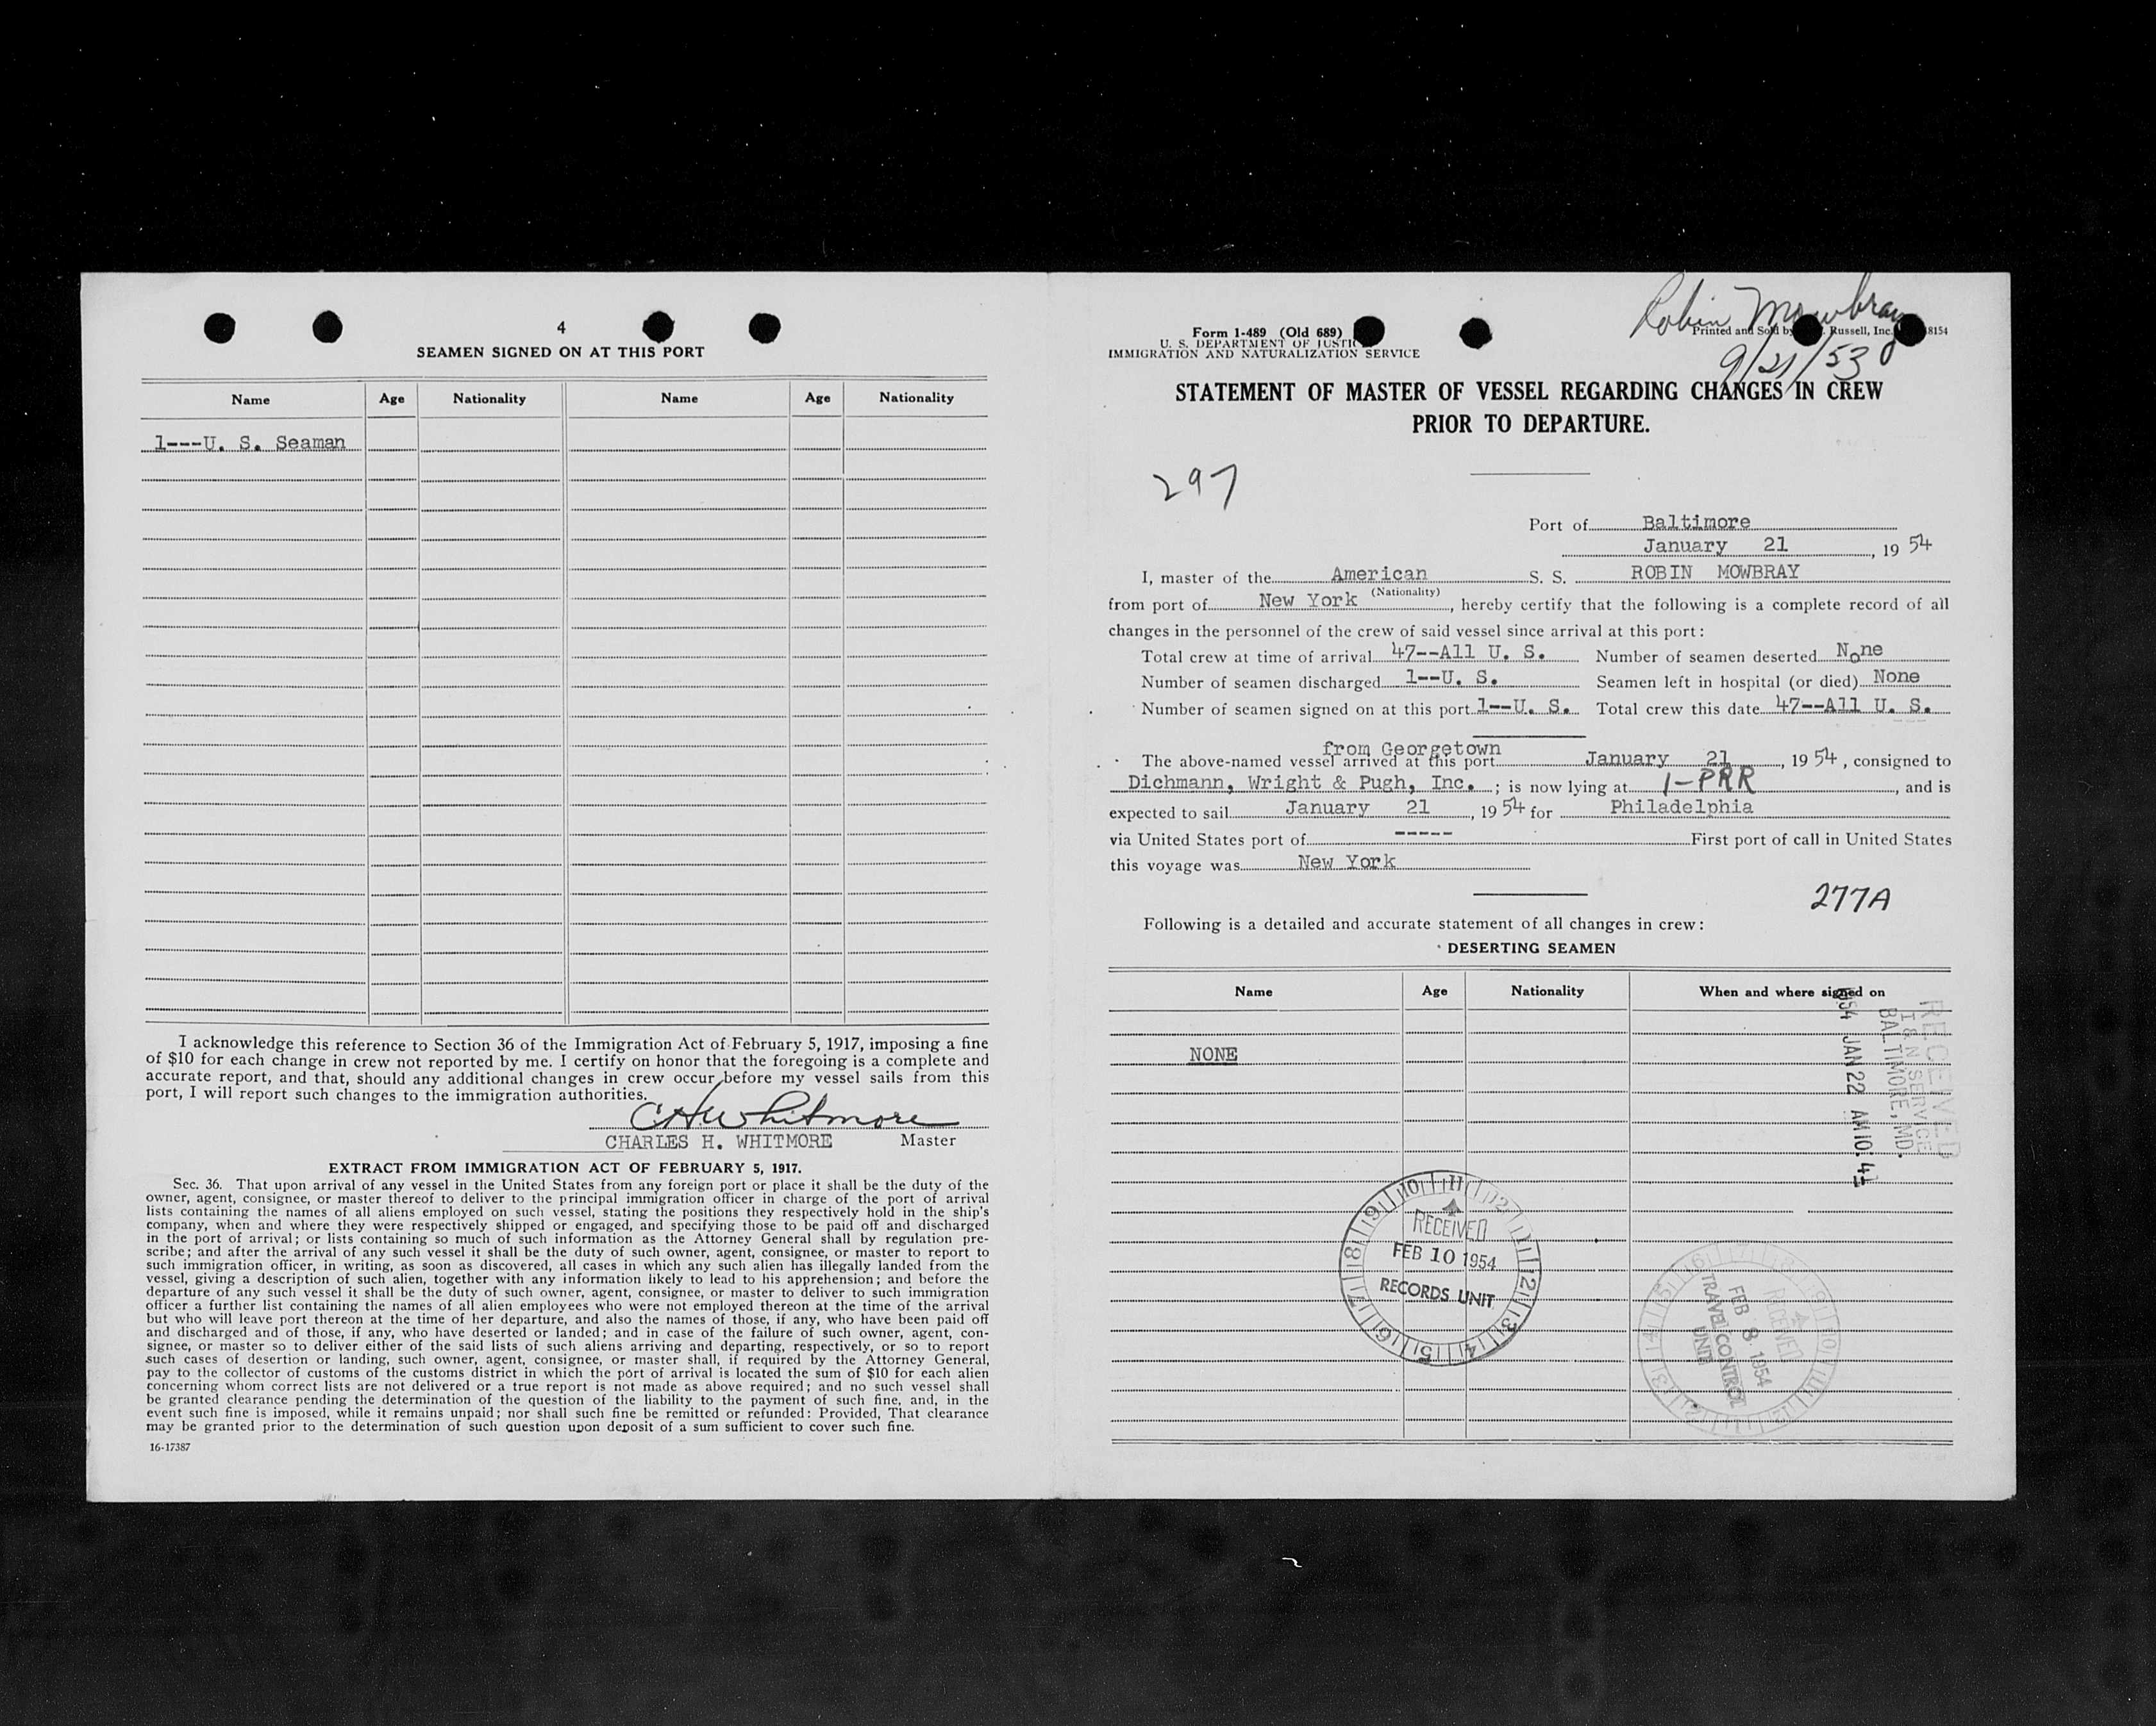 4
SEAMEN SIGNED ON AT THIS PORT
Name Age Nationality Name Age Nationality
1---U. S. Seaman
I acknowledge this reference to Section 36 of the Immigration Act of February 5, 1917, imposing a fine
of $10 for each change in crew not reported by me. I certify on honor that the foregoing is a complete and
accurate report, and that, should any additional changes in crew occur before my vessel sails from this
port, I will report such changes to the immigration authorities.
CHWhitmore
CHARLES H. WHITMORE Master
EXTRACT FROM IMMIGRATION ACT OF FEBRUARY 5, 1917.
Sec. 36. That upon arrival of any vessel in the United States from any foreign port or place it shall be the duty of the
owner, agent, consignee, or master thereof to deliver to the principal immigration officer in charge of the port of arrival
lists containing the names of all aliens employed on such vessel, stating the positions they respectively hold in the ship's
company, when and where they were respectively shipped or engaged, and specifying those to be paid off and discharged
in the port of arrival; or lists containing so much of such information as the Attorney General shall by regulation pre-
scribe; and after the arrival of any such vessel it shall be the duty of such owner, agent, consignee, or master to report to
such immigration officer, in writing, as soon as discovered, all cases in which any such alien has illegally landed from the
vessel, giving a description of such alien, together with any information likely to lead to his apprehension; and before the
departure of any such vessel it shall be the duty of such owner, agent, consignee, or master to deliver to such immigration
officer a further list containing the names of all alien employees who were not employed thereon at the time of the arrival
but who will leave port thereon at the time of her departure, and also the names of those, if any, who have been paid off
and discharged and of those, if any, who have deserted or landed; and in case of the failure of such owner, agent, con-
signee, or master so to deliver either of the said lists of such aliens arriving and departing, respectively, or so to report
such cases of desertion or landing, such owner, agent, consignee, or master shall, if required by the Attorney General,
pay to the collector of customs of the customs district in which the port of arrival is located the sum of $10 for each alien
concerning whom correct lists are not delivered or a true report is not made as above required; and no such vessel shall
be granted clearance pending the determination of the question of the liability to the payment of such fine, and, in the
event such fine is imposed, while it remains unpaid; nor shall such fine be remitted or refunded: Provided, That clearance
may be granted prior to the determination of such question upon deposit of a sum sufficient to cover such fine.
16-17387
Robin Mowbray
9/21/53
Form 1-489 (Old 689)
Printed and Sold by Russell, Inc. 8154
U. S. DEPARTMENT OF JUSTIC
IMMIGRATION AND NATURALIZATION SERVICE
STATEMENT OF MASTER OF VESSEL REGARDING CHANGES IN CREW
PRIOR TO DEPARTURE.
297
Port of Baltimore
January 21, 1954
I, master of the American S. S. ROBIN MOWBRAY
(Nationality)
from port of New York, hereby certify that the following is a complete record of all
changes in the personnel of the crew of said vessel since arrival at this port:
Total crew at time of arrival 47--All U. S. Number of seamen deserted None
Number of seamen discharged 1--U. S. Seamen left in hospital (or died) None
Number of seamen signed on at this port 1--U. S. Total crew this date 47--All U. S.
from Georgetown
The above-named vessel arrived at this port January 21, 1954, consigned to
Dichmann, Wright & Pugh, Inc.; is now lying at 1-PRR, and is
expected to sail January 21, 1954 for Philadelphia
via United States port of ----- First port of call in United States
this voyage was New York
277A
Following is a detailed and accurate statement of all changes in crew:
DESERTING SEAMEN
Name Age Nationality When and where signed on
NONE
RECEIVED
I & N SERVICE
BALTIMORE, MD.
1954 JAN 22 AM 10:44
10 11 12 1 2 3 4 5 6 7 8 9
RECEIVED
FEB 10 1954
RECORDS UNIT
RECEIVED
FEB 8 1954
TRAVEL CONTROL
UNIT